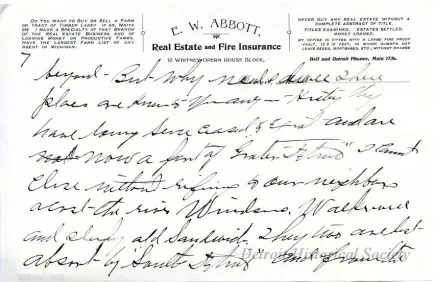 DO YOU WANT TO BUY OR SELL A FARM
OR TRACT OF TIMBER LAND? IF SO, WRITE
ME. I MAKE A SPECIALTY OF THAT BRANCH
OF THE REAL ESTATE BUSINESS AND OF
LOANING MONEY ON PRODUCTIVE FARMS
HAVE THE LARGEST FARM LIST OF ANY
AGENT IN MICHIGAN.
E. W. ABBOTT,
Real Estate and Fire Insurance
10 WHITNEY OPERA HOUSE BLOCK,
NEVER BUY ANY REAL ESTATE WITHOUT A
COMPLETE ABSTRACT OF TITLE.
TITLES EXAMINED. ESTATES SETTLED.
MONEY LOANED.
MY OFFICE IS FITTED WITH A LARGE FIRE PROOF
VAULT, IN WHICH CLIENTS MAY
LEAVE DEEDS, MORTGAGES, ETC., WITHOUT CHARGE
Bell and Detroit Phones, Main 1736.
7
beyond - But why
places are
have long since ceased to exist and are
not now a part of "Greater Detroit" I cannot
close without referring to our neighbors
across the river Windsor. Walkerville
and sleepy old Sandwich. They two are but
absorbed by "South Detroit" and from the
Detroit Historical Society